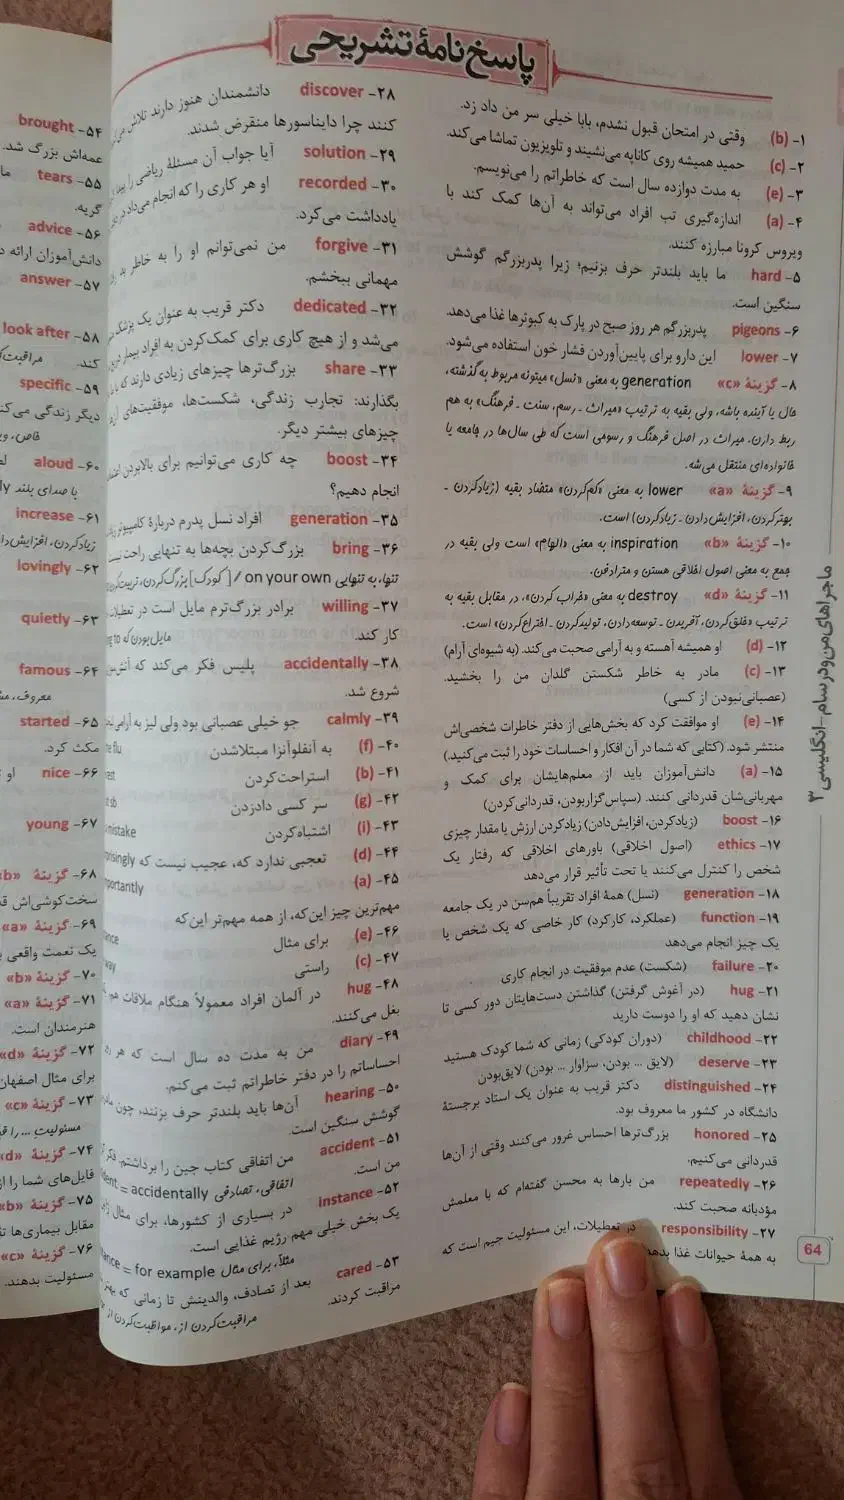 پاسخ‌نامهٔ تشریحی
۱- (b) وقتی در امتحان قبول نشدم، بابا خیلی سر من داد زد.
۲- (c) حمید همیشه روی کاناپه می‌نشیند و تلویزیون تماشا می‌کند.
۳- (e) به مدت دوازده سال است که خاطراتم را می‌نویسم.
۴- (a) اندازه‌گیری تب افراد می‌تواند به آن‌ها کمک کند با
ویروس کرونا مبارزه کنند.
۵- hard ما باید بلندتر حرف بزنیم؛ زیرا پدربزرگم گوشش
سنگین است.
۶- pigeons پدربزرگم هر روز صبح در پارک به کبوترها غذا می‌دهد.
۷- lower این دارو برای پایین‌آوردن فشار خون استفاده می‌شود.
۸- گزینهٔ «c» generation به معنی «نسل» میتونه مربوط به گذشته،
حال یا آینده باشه، ولی بقیه به ترتیب «میراث ـ رسم، سنت ـ فرهنگ» به هم
ربط دارن. میراث در اصل فرهنگ و رسومی است که طی سال‌ها در جامعه یا
خانواده‌ای منتقل می‌شه.
۹- گزینهٔ «a» lower به معنی «کم‌کردن» متضاد بقیه (زیادکردن ـ
بهترکردن، افزایش‌دادن ـ زیادکردن) است.
۱۰- گزینهٔ «b» inspiration به معنی «الهام» است ولی بقیه در
جمع به معنی اصول اخلاقی هستن و مترادفن.
۱۱- گزینهٔ «d» destroy به معنی «خراب کردن»، در مقابل بقیه به
ترتیب «خلق‌کردن، آفریدن ـ توسعه‌دادن، تولیدکردن ـ اختراع‌کردن» است.
۱۲- (d) او همیشه آهسته و به آرامی صحبت می‌کند. (به شیوه‌ای آرام)
۱۳- (c) مادر به خاطر شکستن گلدان من را بخشید.
(عصبانی‌نبودن از کسی)
۱۴- (e) او موافقت کرد که بخش‌هایی از دفتر خاطرات شخصی‌اش
منتشر شود. (کتابی که شما در آن افکار و احساسات خود را ثبت می‌کنید.)
۱۵- (a) دانش‌آموزان باید از معلم‌هایشان برای کمک و
مهربانی‌شان قدردانی کنند. (سپاس‌گزاربودن، قدردانی‌کردن)
۱۶- boost (زیادکردن، افزایش‌دادن) زیادکردن ارزش یا مقدار چیزی
۱۷- ethics (اصول اخلاقی) باورهای اخلاقی که رفتار یک
شخص را کنترل می‌کنند یا تحت تأثیر قرار می‌دهد
۱۸- generation (نسل) همهٔ افراد تقریباً هم‌سن در یک جامعه
۱۹- function (عملکرد، کارکرد) کار خاصی که یک شخص یا
یک چیز انجام می‌دهد
۲۰- failure (شکست) عدم موفقیت در انجام کاری
۲۱- hug (در آغوش گرفتن) گذاشتن دست‌هایتان دور کسی تا
نشان دهید که او را دوست دارید
۲۲- childhood (دوران کودکی) زمانی که شما کودک هستید
۲۳- deserve (لایق ... بودن، سزاوار ... بودن) لایق‌بودن
۲۴- distinguished دکتر قریب به عنوان یک استاد برجستهٔ
دانشگاه در کشور ما معروف بود.
۲۵- honored بزرگ‌ترها احساس غرور می‌کنند وقتی از آن‌ها
قدردانی می‌کنیم.
۲۶- repeatedly من بارها به محسن گفته‌ام که با معلمش
مؤدبانه صحبت کند.
۲۷- responsibility در تعطیلات، این مسئولیت جیم است که
به همهٔ حیوانات غذا بدهد
۲۸- discover دانشمندان هنوز دارند تلاش
کنند چرا دایناسورها منقرض شدند.
۲۹- solution آیا جواب آن مسئلهٔ ریاضی را
۳۰- recorded او هر کاری را که انجام می‌داد
یادداشت می‌کرد.
۳۱- forgive من نمی‌توانم او را به خاطر
مهمانی ببخشم.
۳۲- dedicated دکتر قریب به عنوان یک پزشک
می‌شد و از هیچ کاری برای کمک‌کردن به افراد بیمار
۳۳- share بزرگ‌ترها چیزهای زیادی دارند که
بگذارند: تجارب زندگی، شکست‌ها، موفقیت‌های
چیزهای بیشتر دیگر.
۳۴- boost چه کاری می‌توانیم برای بالابردن
انجام دهیم؟
۳۵- generation افراد نسل پدرم دربارهٔ کامپیوتر
۳۶- bring بزرگ‌کردن بچه‌ها به تنهایی راحت نیست
تنها، به تنهایی on your own / [کودک] بزرگ‌کردن، تربیت‌کردن
۳۷- willing برادر بزرگ‌ترم مایل است در تعطیلات
کار کند. مایل‌بودن که to
۳۸- accidentally پلیس فکر می‌کند که آتش
شروع شد.
۳۹- calmly جو خیلی عصبانی بود ولی لیز به آرامی
۴۰- (f) به آنفلوآنزا مبتلاشدن flu
۴۱- (b) استراحت‌کردن
۴۲- (g) سر کسی دادزدن sb
۴۳- (i) اشتباه‌کردن mistake
۴۴- (d) تعجبی ندارد که، عجیب نیست که
۴۵- (a)
مهم‌ترین چیز این‌که، از همه مهم‌تر این‌که
۴۶- (e) برای مثال
۴۷- (c) راستی
۴۸- hug در آلمان افراد معمولاً هنگام ملاقات
بغل می‌کنند.
۴۹- diary من به مدت ده سال است که هر
احساساتم را در دفتر خاطراتم ثبت می‌کنم.
۵۰- hearing آن‌ها باید بلندتر حرف بزنند، چون
گوشش سنگین است.
۵۱- accident من اتفاقی کتاب جین را برداشتم.
من است. اتفاقی، تصادفی = accidentally
۵۲- instance در بسیاری از کشورها، برای مثال
یک بخش خیلی مهم رژیم غذایی است.
مثلاً، برای مثال = for example
۵۳- cared بعد از تصادف، والدینش تا زمانی که
مراقبت کردند. مراقبت‌کردن از، مواظبت‌کردن از
۵۴- brought
عمه‌اش بزرگ شد.
۵۵- tears
گریه.
۵۶- advice
دانش‌آموزان ارائه
۵۷- answer
۵۸- look after
کند.
۵۹- specific
دیگر زندگی
۶۰- aloud
با صدای بلند
۶۱- increase
زیادکردن،
۶۲- lovingly
۶۳- quietly
۶۴- famous
معروف،
۶۵- started
مکث کرد.
۶۶- nice او
۶۷- young
۶۸- گزینهٔ «b»
سخت‌کوشی‌اش
۶۹- گزینهٔ «a»
یک نعمت واقعی
۷۰- گزینهٔ «b»
۷۱- گزینهٔ «a»
هنرمندان است.
۷۲- گزینهٔ «d»
برای مثال اصفهان
۷۳- گزینهٔ «c»
مسئولیتِ ... را
۷۴- گزینهٔ «d»
فایل‌های شما را
۷۵- گزینهٔ «b»
مقابل بیماری‌ها
۷۶- گزینهٔ «c»
مسئولیت بدهند.
ماجراهای من و درسام - انگلیسی ۳
64